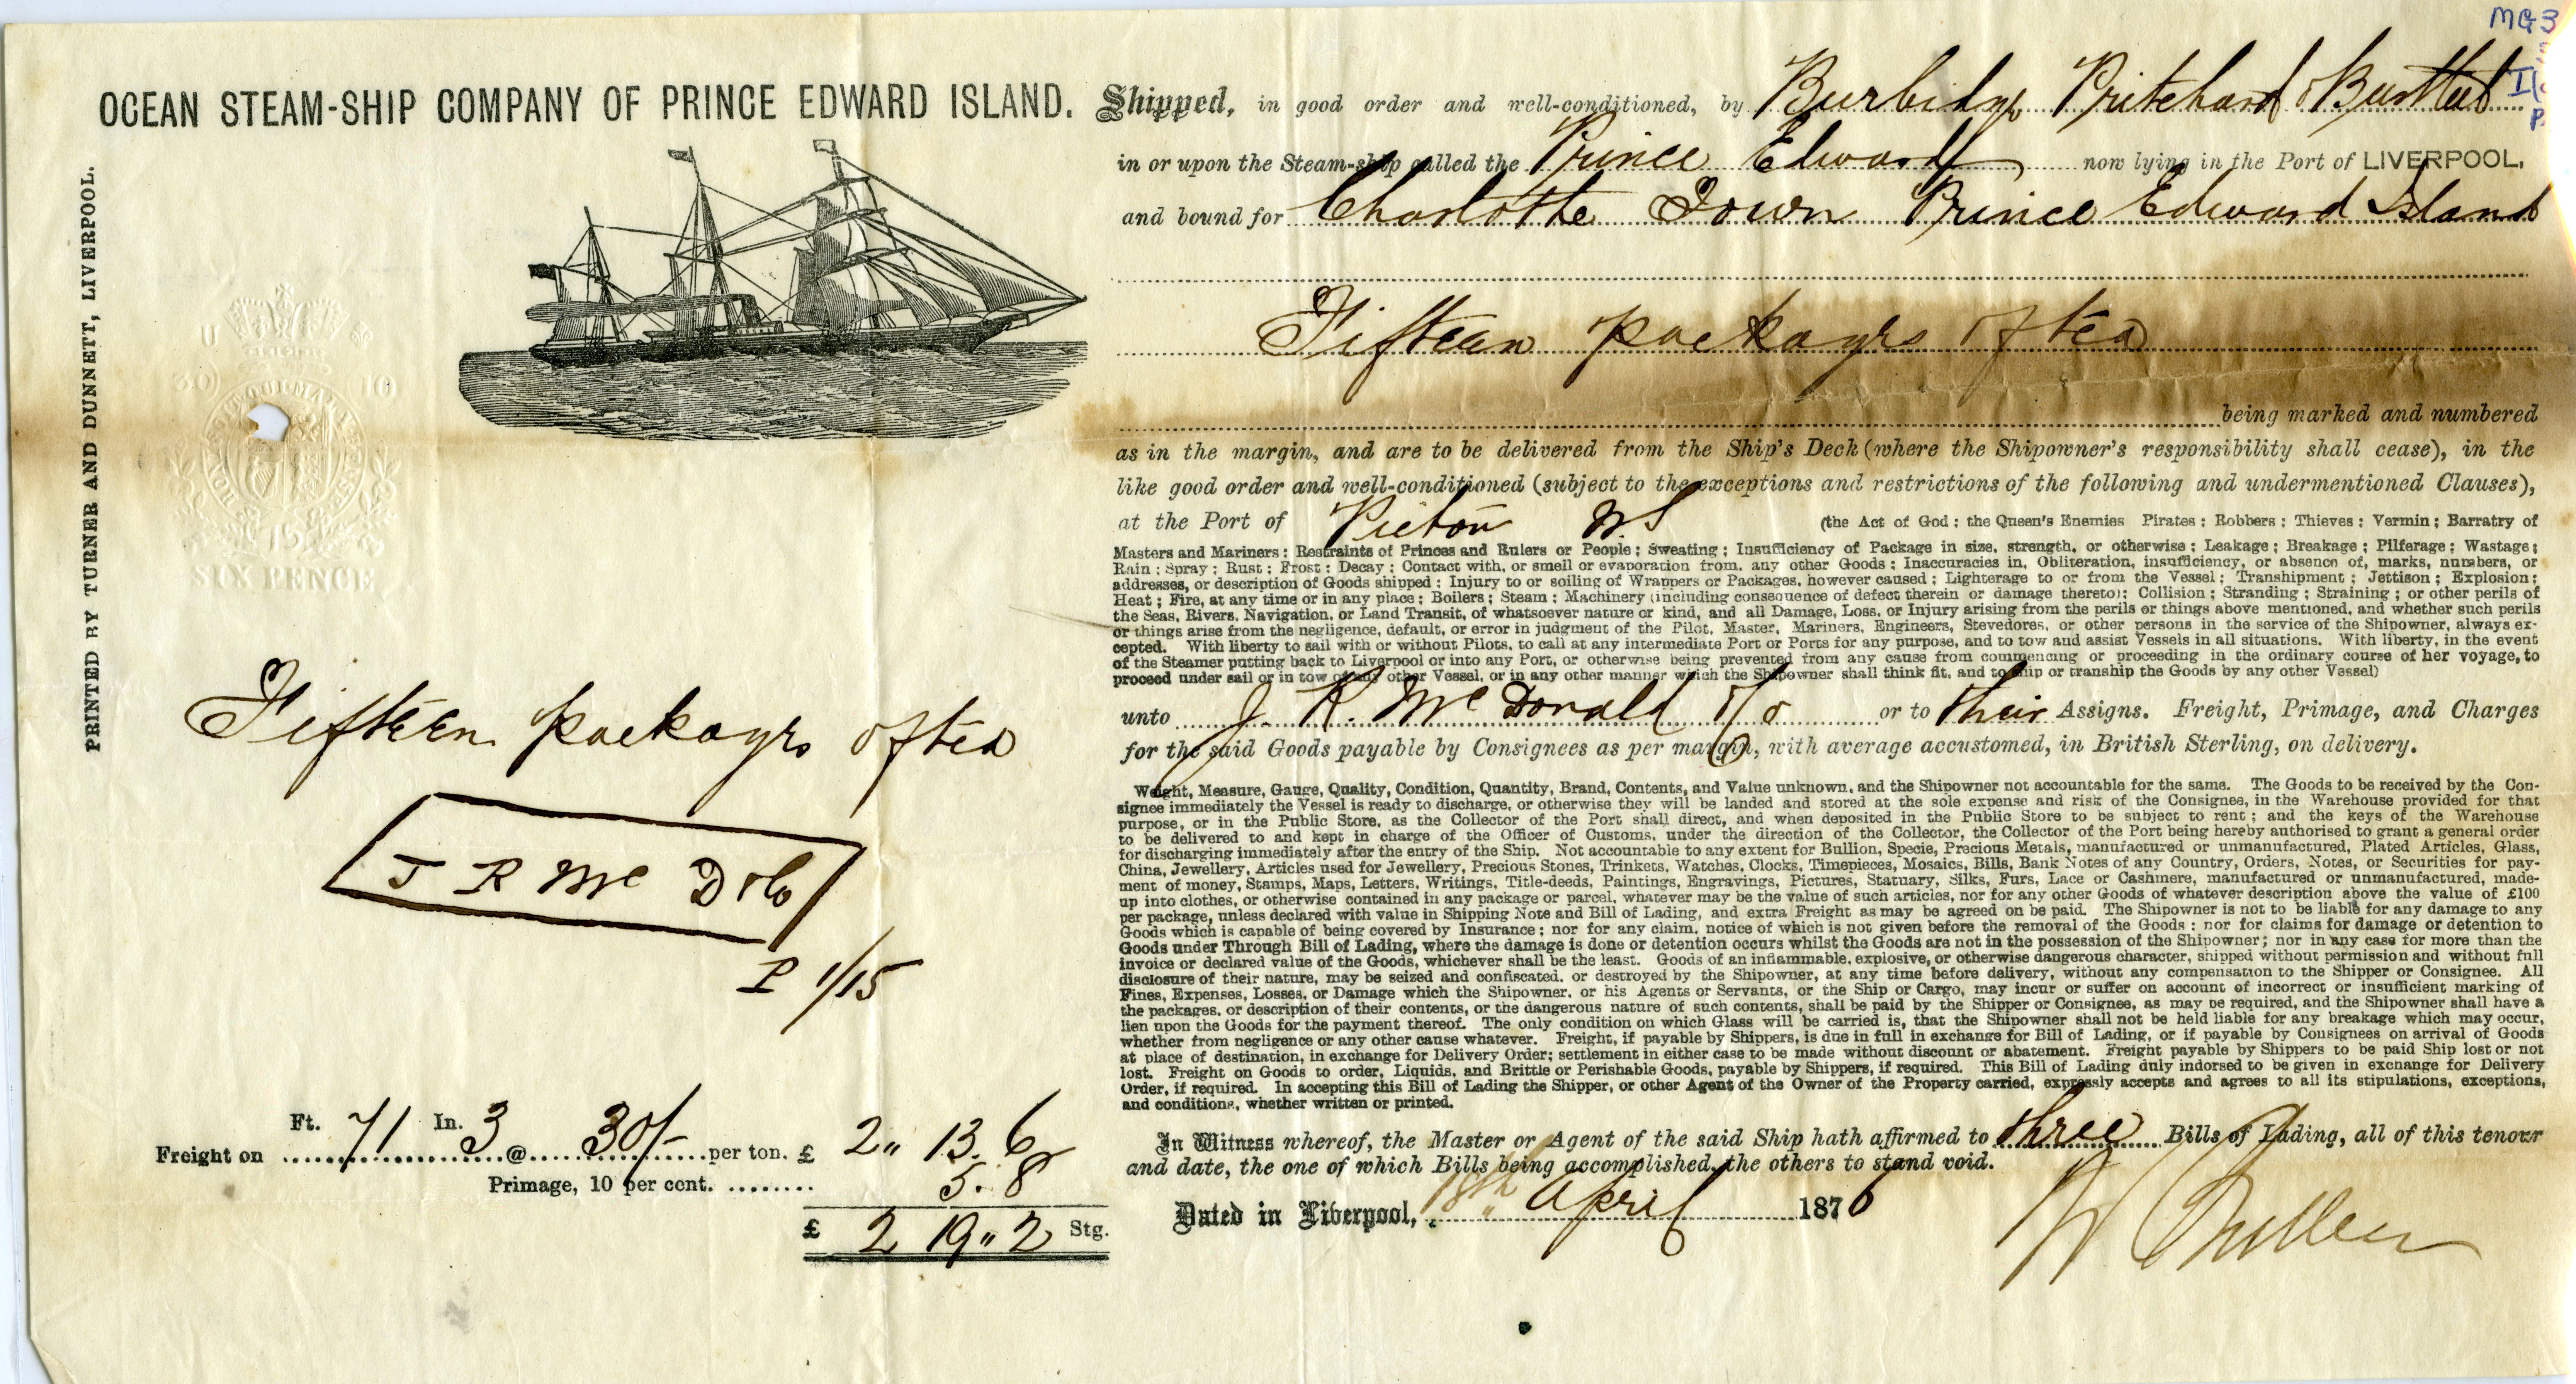 MG3
OCEAN STEAM-SHIP COMPANY OF PRINCE EDWARD ISLAND.
PRINTED BY TURNER AND DUNNETT, LIVERPOOL.
U
30 10
158
SIX PENCE
Fifteen packages of tea
J R Mc D & Co
P 1/15
Ft. 71 In. 3
Freight on @ 30/- per ton. £ 2 " 13. 6
Primage, 10 per cent. 5. 8
£ 2 19 " 2 Stg.
Shipped, in good order and well-conditioned, by Burbidge Pritchard &
in or upon the Steam-ship called the Prince Edward now lying in the Port of LIVERPOOL,
and bound for Charlotte Town Prince Edward Island
Fifteen packages of tea
being marked and numbered
as in the margin, and are to be delivered from the Ship's Deck (where the Shipowner's responsibility shall cease), in the
like good order and well-conditioned (subject to the exceptions and restrictions of the following and undermentioned Clauses),
at the Port of Pictou N.S (the Act of God : the Queen's Enemies Pirates : Robbers : Thieves : Vermin ; Barratry of
Masters and Mariners : Restraints of Princes and Rulers or People ; Sweating ; Insufficiency of Package in size, strength, or otherwise ; Leakage ; Breakage ; Pilferage ; Wastage ;
Rain : Spray : Rust : Frost : Decay : Contact with, or smell or evaporation from, any other Goods : Inaccuracies in, Obliteration, insufficiency, or absence of, marks, numbers, or
addresses, or description of Goods shipped : Injury to or soiling of Wrappers or Packages, however caused ; Lighterage to or from the Vessel : Transhipment ; Jettison ; Explosion ;
Heat ; Fire, at any time or in any place ; Boilers ; Steam : Machinery (including consequence of defect therein or damage thereto): Collision ; Stranding ; Straining ; or other perils of
the Seas, Rivers, Navigation, or Land Transit, of whatsoever nature or kind, and all Damage, Loss, or Injury arising from the perils or things above mentioned, and whether such perils
or things arise from the negligence, default, or error in judgment of the Pilot, Master, Mariners, Engineers, Stevedores, or other persons in the service of the Shipowner, always ex-
cepted. With liberty to sail with or without Pilots, to call at any intermediate Port or Ports for any purpose, and to tow and assist Vessels in all situations. With liberty, in the event
of the Steamer putting back to Liverpool or into any Port, or otherwise being prevented from any cause from commencing or proceeding in the ordinary course of her voyage, to
proceed under sail or in tow of any other Vessel, or in any other manner which the Shipowner shall think fit, and to ship or tranship the Goods by any other Vessel)
unto J. R. McDonald & Co or to their Assigns. Freight, Primage, and Charges
for the said Goods payable by Consignees as per margin, with average accustomed, in British Sterling, on delivery.
Weight, Measure, Gauge, Quality, Condition, Quantity, Brand, Contents, and Value unknown, and the Shipowner not accountable for the same. The Goods to be received by the Con-
signee immediately the Vessel is ready to discharge, or otherwise they will be landed and stored at the sole expense and risk of the Consignee, in the Warehouse provided for that
purpose, or in the Public Store, as the Collector of the Port shall direct, and when deposited in the Public Store to be subject to rent ; and the keys of the Warehouse
to be delivered to and kept in charge of the Officer of Customs, under the direction of the Collector, the Collector of the Port being hereby authorised to grant a general order
for discharging immediately after the entry of the Ship. Not accountable to any extent for Bullion, Specie, Precious Metals, manufactured or unmanufactured, Plated Articles, Glass,
China, Jewellery, Articles used for Jewellery, Precious Stones, Trinkets, Watches, Clocks, Timepieces, Mosaics, Bills, Bank Notes of any Country, Orders, Notes, or Securities for pay-
ment of money, Stamps, Maps, Letters, Writings, Title-deeds, Paintings, Engravings, Pictures, Statuary, Silks, Furs, Lace or Cashmere, manufactured or unmanufactured, made-
up into clothes, or otherwise contained in any package or parcel, whatever may be the value of such articles, nor for any other Goods of whatever description above the value of £100
per package, unless declared with value in Shipping Note and Bill of Lading, and extra Freight as may be agreed on be paid. The Shipowner is not to be liable for any damage to any
Goods which is capable of being covered by Insurance ; nor for any claim, notice of which is not given before the removal of the Goods : nor for claims for damage or detention to
Goods under Through Bill of Lading, where the damage is done or detention occurs whilst the Goods are not in the possession of the Shipowner ; nor in any case for more than the
invoice or declared value of the Goods, whichever shall be the least. Goods of an inflammable, explosive, or otherwise dangerous character, shipped without permission and without full
disclosure of their nature, may be seized and confiscated, or destroyed by the Shipowner, at any time before delivery, without any compensation to the Shipper or Consignee. All
Fines, Expenses, Losses, or Damage which the Shipowner, or his Agents or Servants, or the Ship or Cargo, may incur or suffer on account of incorrect or insufficient marking of
the packages, or description of their contents, or the dangerous nature of such contents, shall be paid by the Shipper or Consignee, as may be required, and the Shipowner shall have a
lien upon the Goods for the payment thereof. The only condition on which Glass will be carried is, that the Shipowner shall not be held liable for any breakage which may occur,
whether from negligence or any other cause whatever. Freight, if payable by Shippers, is due in full in exchange for Bill of Lading, or if payable by Consignees on arrival of Goods
at place of destination, in exchange for Delivery Order; settlement in either case to be made without discount or abatement. Freight payable by Shippers to be paid Ship lost or not
lost. Freight on Goods to order, Liquids, and Brittle or Perishable Goods, payable by Shippers, if required. This Bill of Lading duly indorsed to be given in exchange for Delivery
Order, if required. In accepting this Bill of Lading the Shipper, or other Agent of the Owner of the Property carried, expressly accepts and agrees to all its stipulations, exceptions,
and conditions, whether written or printed.
In Witness whereof, the Master or Agent of the said Ship hath affirmed to three Bills of Lading, all of this tenour
and date, the one of which Bills being accomplished, the others to stand void.
Dated in Liverpool, 18th April 1876